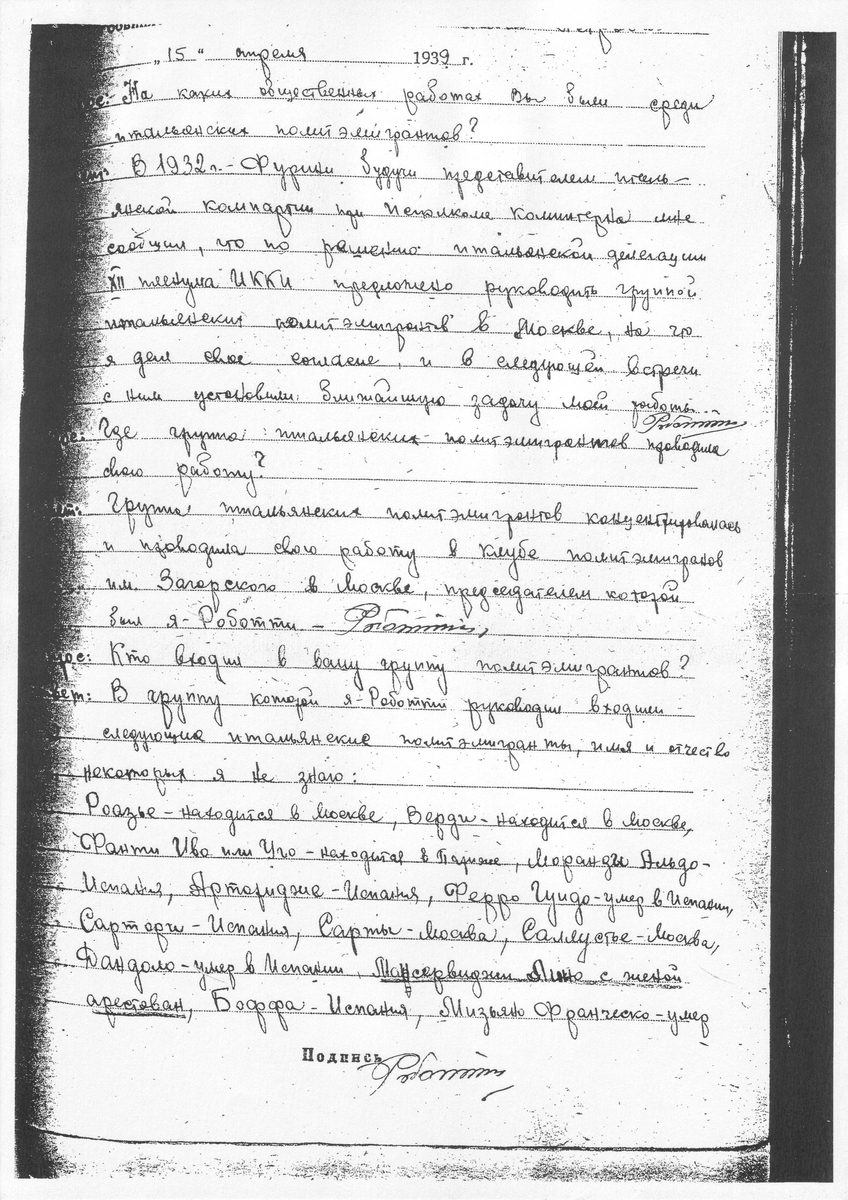 "15" апреля 1939 г.
На каких общественных работах вы были среди
итальянских политэмигрантов?
В 1932 г. - Фурини будучи представителем италь-
янской компартии при Исполкоме Коминтерна мне
сообщил, что по решению итальянской делегации
XII пленума ИККИ предложено руководить группой
итальянских политэмигрантов в Москве, на что
я дал свое согласие, и в следующей встречи
с ним установили ближайшую задачу моей работы.
Где группа итальянских политэмигрантов проводила
свою работу?
Группа итальянских политэмигрантов концентрировалась
и проводила свою работу в клубе политэмигранов
им. Загорского в Москве, председателем которой
был я - Роботти -
рос: Кто входил в вашу группу политэмигрантов?
вет: В группу которой я - Роботти руководил входили
следующие итальянские политэмигранты, имя и отчество
некоторых я не знаю:
Роазье - находится в Москве, Верди - находится в Москве,
Фанти Иво или Уго - находится в Париже, Моранды Альдо -
Испания, Артоджие - Испания, Ферро Гуидо - умер в Испании,
Сартори - Испания, Сарты - Москва, Саллустье - Москва,
Фандоло - умер в Испании, Мансервиджи Лино с женой
арестован, Боффа - Испания, Мизьяно Франческо - умер
Подпись